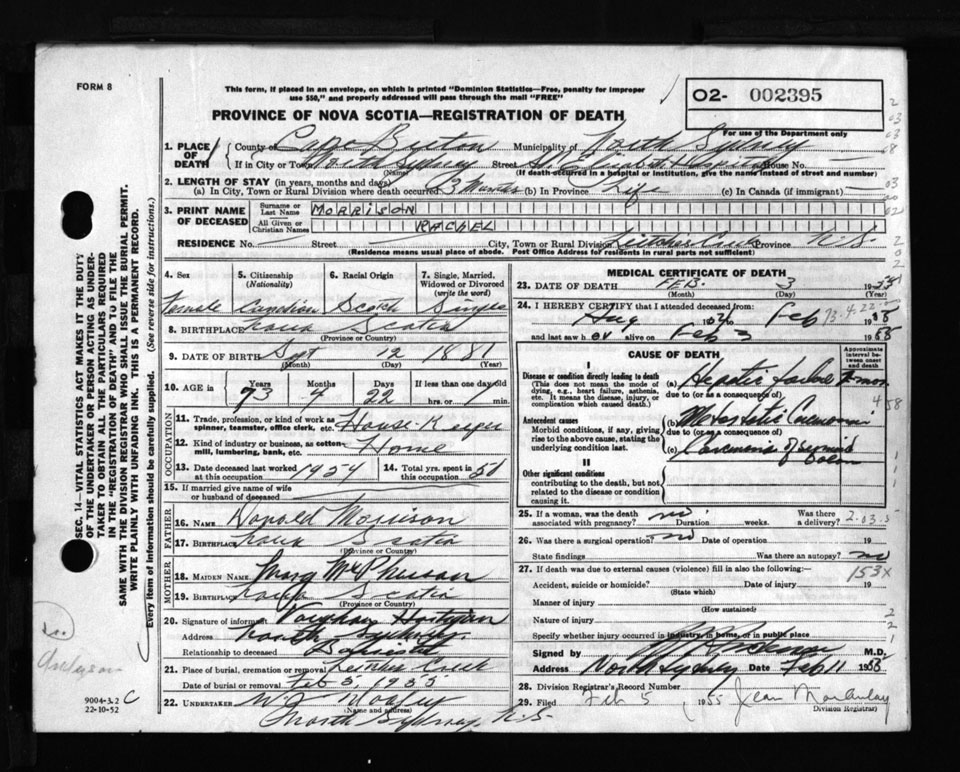 FORM 8
This form, if placed in an envelope, on which is printed "Dominion Statistics—Free, penalty for improper
use $50," and properly addressed will pass through the mail "FREE"
02- 002395
PROVINCE OF NOVA SCOTIA—REGISTRATION OF DEATH
For use of the Department only
1. PLACE OF DEATH County of Cape Breton Municipality of North Sydney
If in City or Town North Sydney Street St. Elizabeth Hospital House No. —
(Name) (If death occurred in a hospital or institution, give the name instead of street and number)
2. LENGTH OF STAY (in years, months and days)
(a) In City, Town or Rural Division where death occurred 3 (b) In Province Life (c) In Canada (if immigrant)
3. PRINT NAME OF DECEASED Surname or Last Name MORRISON
All Given or Christian Names RACHEL
RESIDENCE No. — Street — City, Town or Rural Division Leitches Creek Province N.S.
(Residence means usual place of abode. Post Office Address for residents in rural parts not sufficient)
4. Sex 5. Citizenship (Nationality) 6. Racial Origin 7. Single, Married, Widowed or Divorced (write the word)
Female Canadian Scotch Single
8. BIRTHPLACE Nova Scotia
(Province or Country)
9. DATE OF BIRTH Sept 12 1881
(Month) (Day) (Year)
10. AGE in Years Months Days If less than one day old
73 4 22 hrs. or min.
OCCUPATION
11. Trade, profession, or kind of work as spinner, teamster, office clerk, etc. House-Keeper
12. Kind of industry or business, as cotton-mill, lumbering, bank, etc. Home
13. Date deceased last worked at this occupation 1954 14. Total yrs. spent in this occupation 50
15. If married give name of wife or husband of deceased
FATHER
16. Name Donald Morrison
17. Birthplace Nova Scotia
(Province or Country)
MOTHER
18. Maiden Name Mary McPherson
19. Birthplace Nova Scotia
(Province or Country)
20. Signature of informant
Address North Sydney
Relationship to deceased
21. Place of burial, cremation or removal Leitches Creek
Date of burial or removal Feb 5, 1955
22. UNDERTAKER
(Name and address)
North Sydney, N.S.
MEDICAL CERTIFICATE OF DEATH
23. DATE OF DEATH FEB. 3 1955
(Month) (Day) (Year)
24. I HEREBY CERTIFY that I attended deceased from:
Aug 1954 to Feb 3 1955
and last saw her alive on Feb 3 1955
CAUSE OF DEATH
Approximate interval between onset and death
I
Disease or condition directly leading to death
(This does not mean the mode of dying, e.g., heart failure, asthenia, etc. It means the disease, injury, or complication which caused death.)
(a) Hepatic failure
due to (or as a consequence of)
Antecedent causes
Morbid conditions, if any, giving rise to the above cause, stating the underlying condition last.
(b) Metastatic Carcinoma
due to (or as a consequence of)
(c) Carcinoma of sigmoid colon
II
Other significant conditions
contributing to the death, but not related to the disease or condition causing it.
25. If a woman, was the death associated with pregnancy? no Duration weeks. Was there a delivery?
26. Was there a surgical operation? no Date of operation 19
State findings Was there an autopsy? no
27. If death was due to external causes (violence) fill in also the following:
153X
Accident, suicide or homicide? Date of injury 19
(State which)
Manner of injury
(How sustained)
Nature of injury
Specify whether injury occurred in industry, in home, or in public place
Signed by M.D.
Address North Sydney Date Feb 11 1955
28. Division Registrar's Record Number
29. Filed Feb 5 1955 Jean
Division Registrar)
SEC. 14—VITAL STATISTICS ACT MAKES IT THE DUTY
OF THE UNDERTAKER OR PERSON ACTING AS UNDER-
TAKER TO OBTAIN ALL THE PARTICULARS REQUIRED
IN THE "REGISTRATION OF DEATH" AND TO FILE THE
SAME WITH THE DIVISION REGISTRAR WHO SHALL ISSUE THE BURIAL PERMIT.
WRITE PLAINLY WITH UNFADING INK. THIS IS A PERMANENT RECORD.
Every item of Information should be carefully supplied. (See reverse side for instructions.)
9004-3.2 C
22-10-52